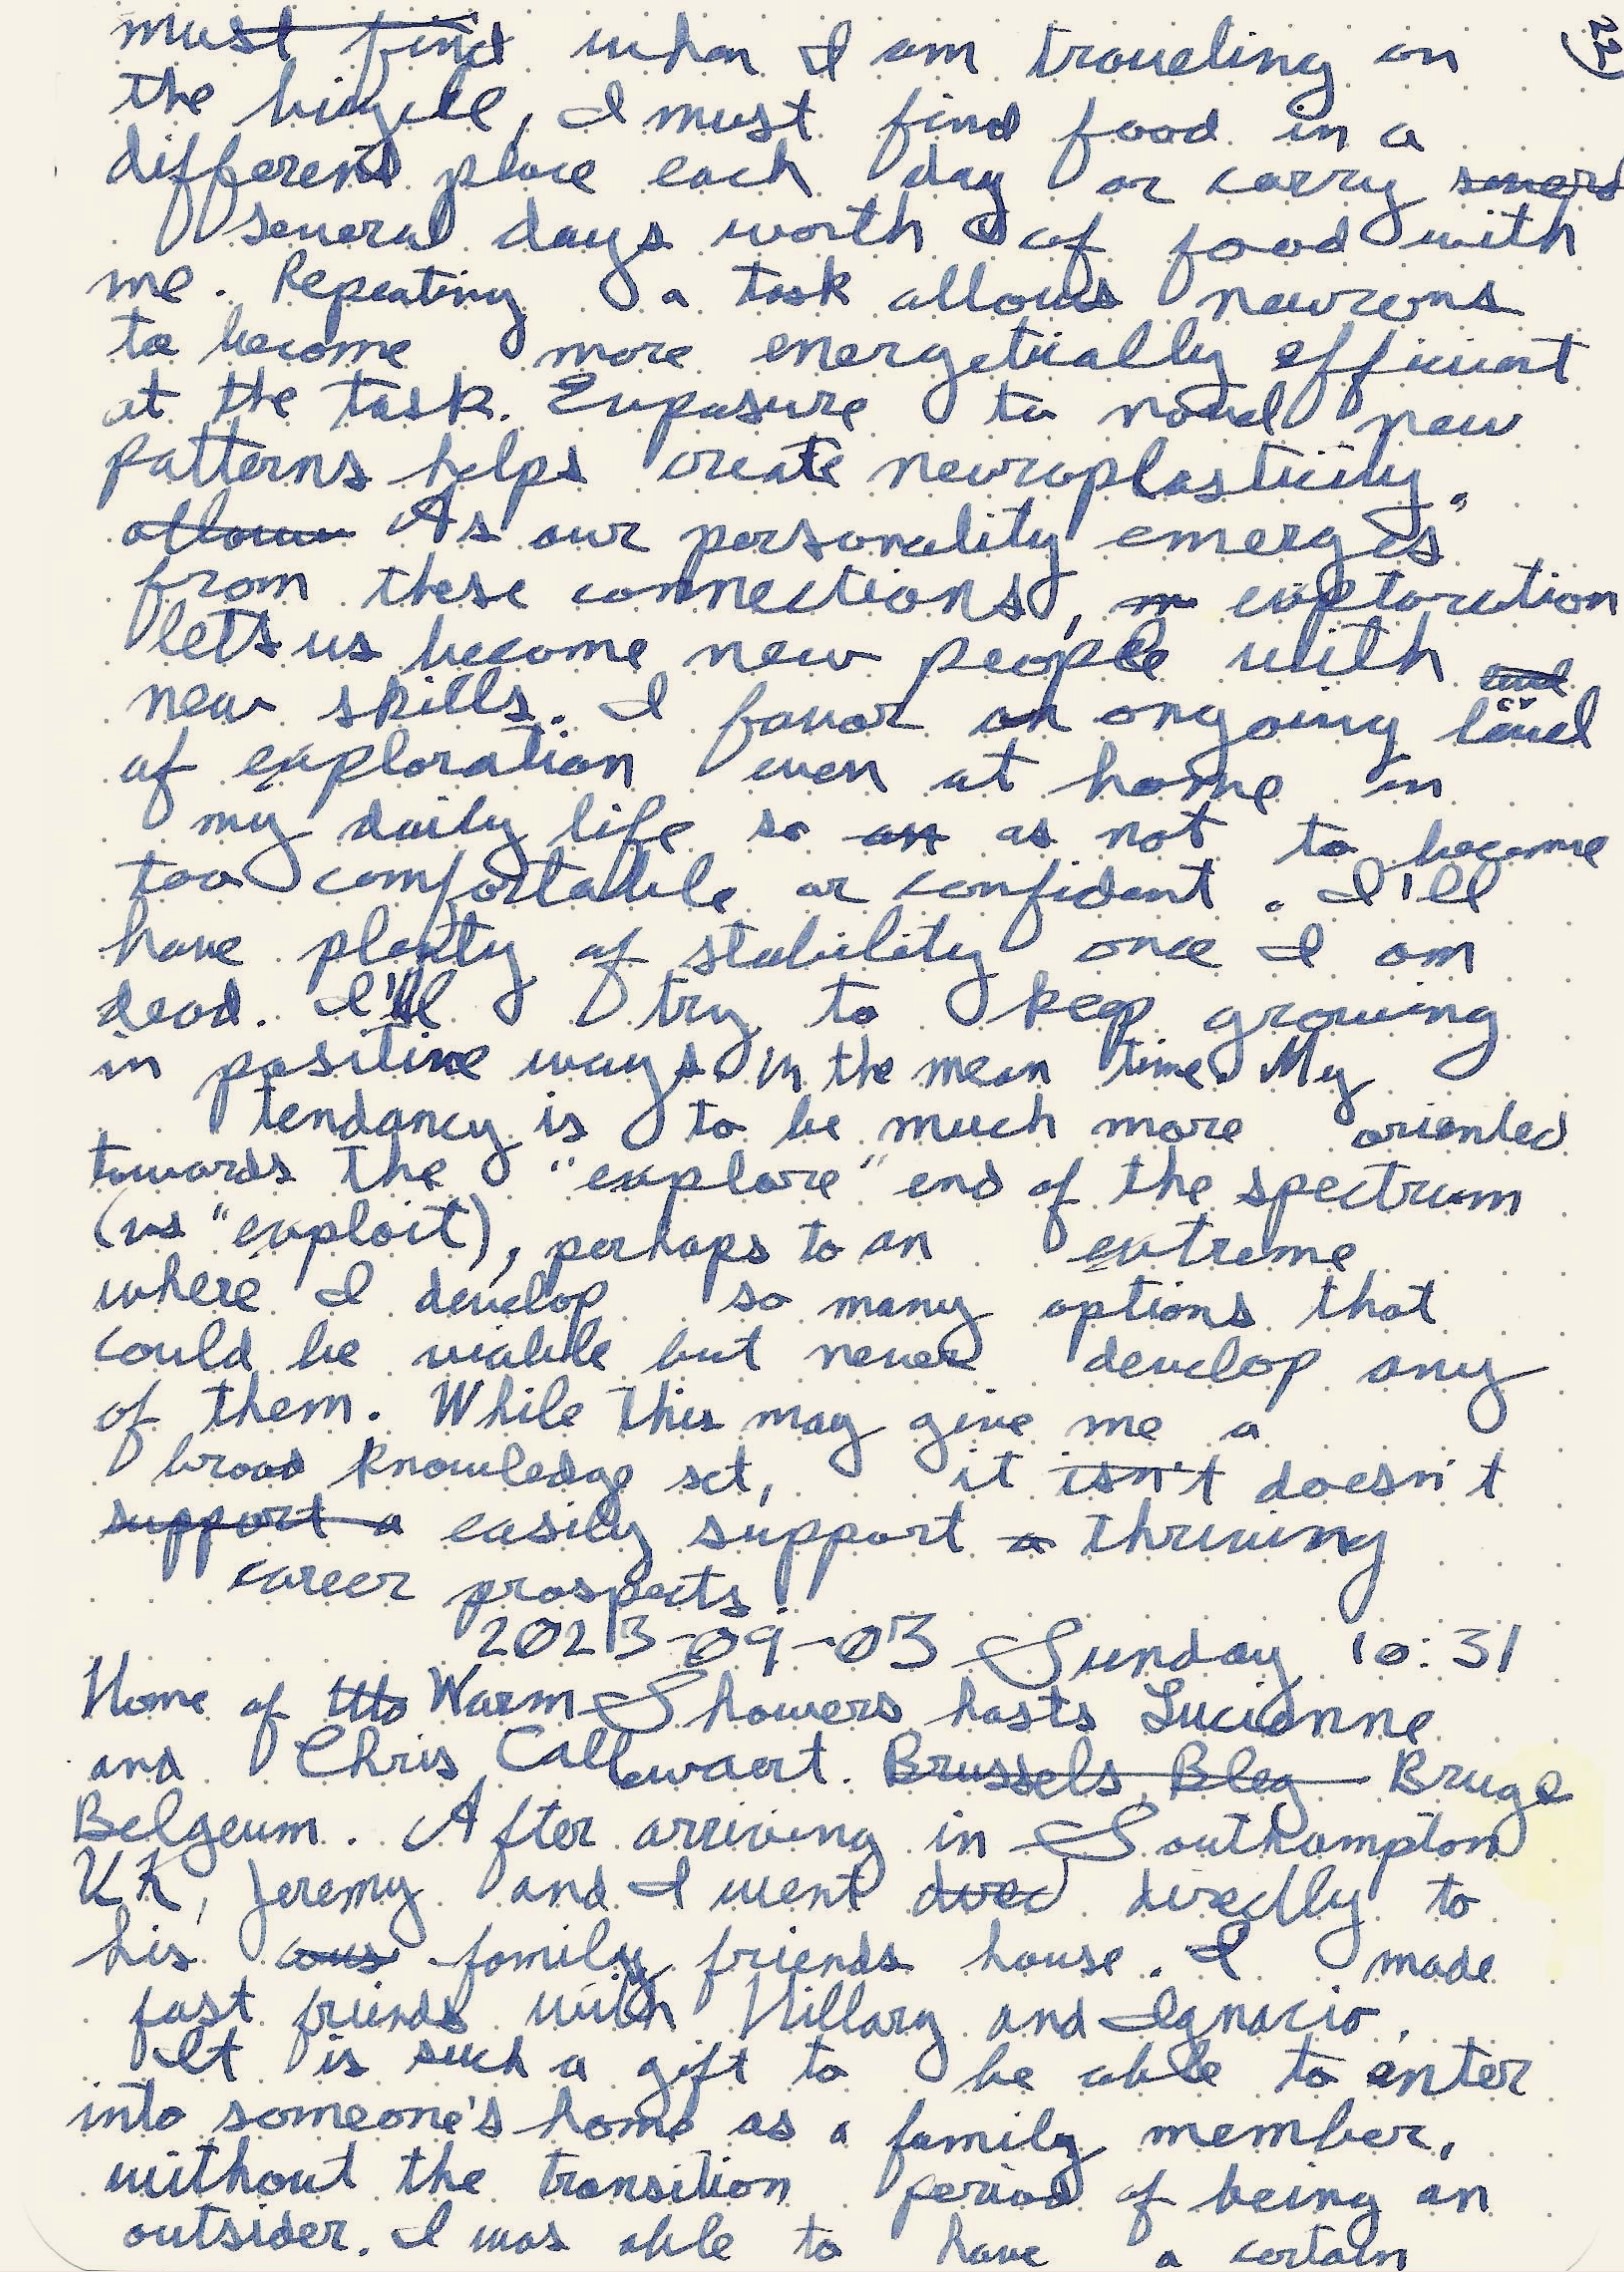 must find when I am traveling on
the bicycle, I must find food in a
different place each day or carry
several days worth of food with
me. Repeating a task allows neurons
to become more energetically efficient
at the task. Exposure to novel new
patterns helps create neuroplasticity.
allow As our personality emerges
from these connections, exploration
lets us become new people with and
new skills. I favor an ongoing level
of exploration even at home in
my daily life so an as not to become
too comfortable or confident. I'll
have plenty of stability once I am
dead. I'll try to keep growing
in positive ways in the mean time. My
tendancy is to be much more oriented
towards the "explore" end of the spectrum
(vs "exploit), perhaps to an extreme
where I develop so many options that
could be viable but never develop any
of them. While this may give me a
broad knowledge set, it isn't doesn't
support a easily support a thriving
career prospects.
2023-09-03 Sunday 10:31
Home of Warm Showers hosts Lucianne
and Chris Callewaert. Brussels Bleg Bruge
Belgeum. After arriving in Southampton
UK, Jeremy and I went direc directly to
his cous family friends house. I made
fast friends with Hillary and Ignacio.
It is such a gift to be able to enter
into someone's home as a family member,
without the transition period of being an
outsider. I was able to have a certain